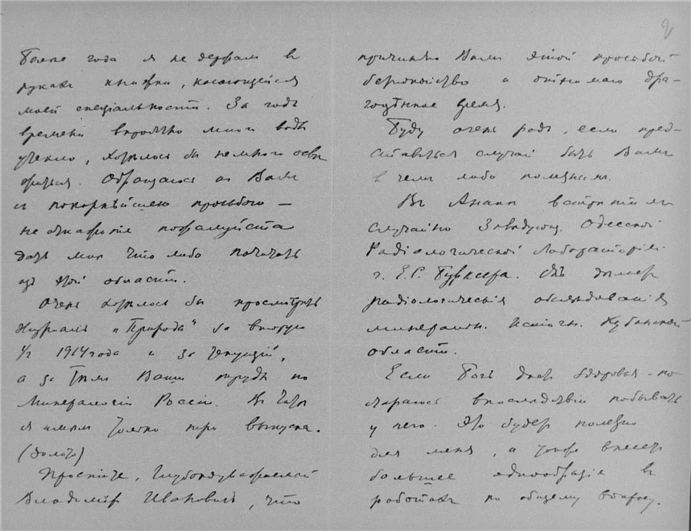 Более года я не держал в
руках книжки, касающейся
моей специальности. За годъ
времени вероятно много воды
утекло, хотелось бы немного осве
житься. Обращаюсь къ Вамъ
съ покорнѣйшею просьбою –
не откажите пожалуйста
дать мнѣ что либо почитать
изъ этой области.
Очень хотелось бы просмотрѣть
журналъ "Природа" за вторую
1/2 1914 года и за текущій,
а затѣмъ Ваши труды по
Минералогіи Россіи. Изъ
я имѣлъ только три выпуска.
Простите, глубокоуважаемый
Владиміръ Ивановичъ, что
2
причиняю Вамъ этой просьбой
безпокойство и отнимаю дра-
гоцѣнное время.
Буду очень радъ, если пред-
ставится случай быть Вамъ
въ чемъ либо полезнымъ.
Въ Анапѣ встрѣтилъ
случайно Завѣдующ. Одесской
Радіологической Лабораторіей
г. Е.С. Бурксера. Онъ
радіологическія обслѣдованія
минеральн. источн. Кубанской
области.
Если Богъ дастъ здоровья – по-
стараюсь впослѣдствіи побывать
у него. Это будетъ полезно
для меня, а также внесетъ
большее однообразіе въ
работахъ по общему вопросу.